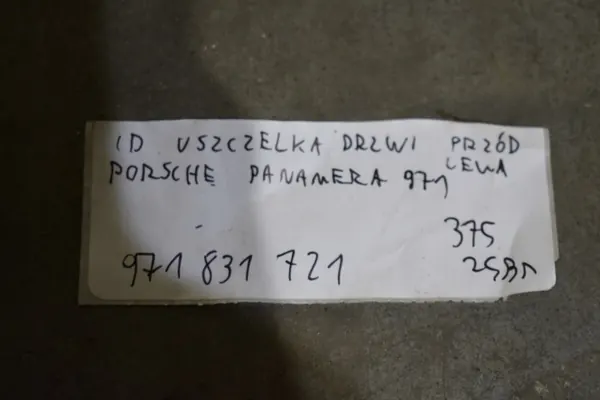 ID USZCZELKA DRZWI PRZÓD
LEWA
PORSCHE PANAMERA 971
375
971 831 721